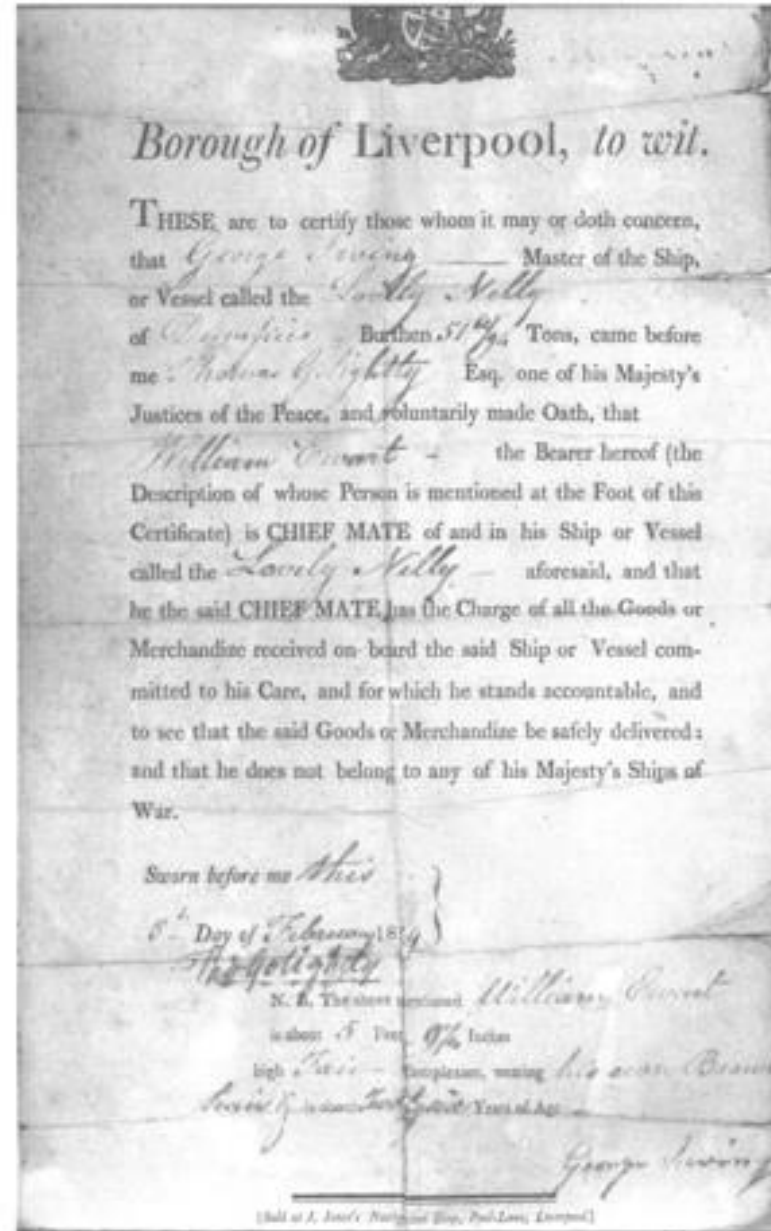 Borough of Liverpool, to wit.
THESE are to certify those whom it may or doth concern,
that George Irving Master of the Ship,
or Vessel called the Lovely Nelly
of Dumfries Burthen 51 Tons, came before
me Thomas Golightly Esq. one of his Majesty's
Justices of the Peace, and voluntarily made Oath, that
William Ewart - the Bearer hereof (the
Description of whose Person is mentioned at the Foot of this
Certificate) is CHIEF MATE of and in his Ship or Vessel
called the Lovely Nelly - aforesaid, and that
he the said CHIEF MATE has the Charge of all the Goods or
Merchandize received on board the said Ship or Vessel com-
mitted to his Care, and for which he stands accountable, and
to see that the said Goods or Merchandize be safely delivered:
and that he does not belong to any of his Majesty's Ships of
War.
Sworn before me this
5th Day of February 18
Tho Golightly
N. B. The above mentioned William Ewart
is about 5 Feet Inches
high Fair - Complexion, wearing his own Brown
Years of Age
George Irving
[Sold at J. Jones's Navigation Shop, Pool-Lane, Liverpool]